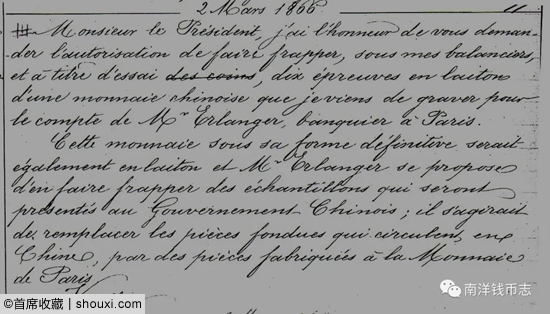 2 Mars 1866
Monsieur le Président, j'ai l'honneur de vous deman-
der l'autorisation de faire frapper, sous mes balanciers,
et à titre d'essai des coins, dix épreuves en laiton
d'une monnaie chinoise que je viens de graver pour
le compte de Mr Erlanger, banquier à Paris.
Cette monnaie sous sa forme définitive serait
également en laiton et Mr Erlanger se propose
d'en faire frapper des échantillons qui seront
présentés au Gouvernement Chinois; il s'agirait
de remplacer les pièces fondues qui circulent, en
Chine, par des pièces fabriquées à la Monnaie
de Paris
©首席收藏 | shouxi.com
南洋钱币志